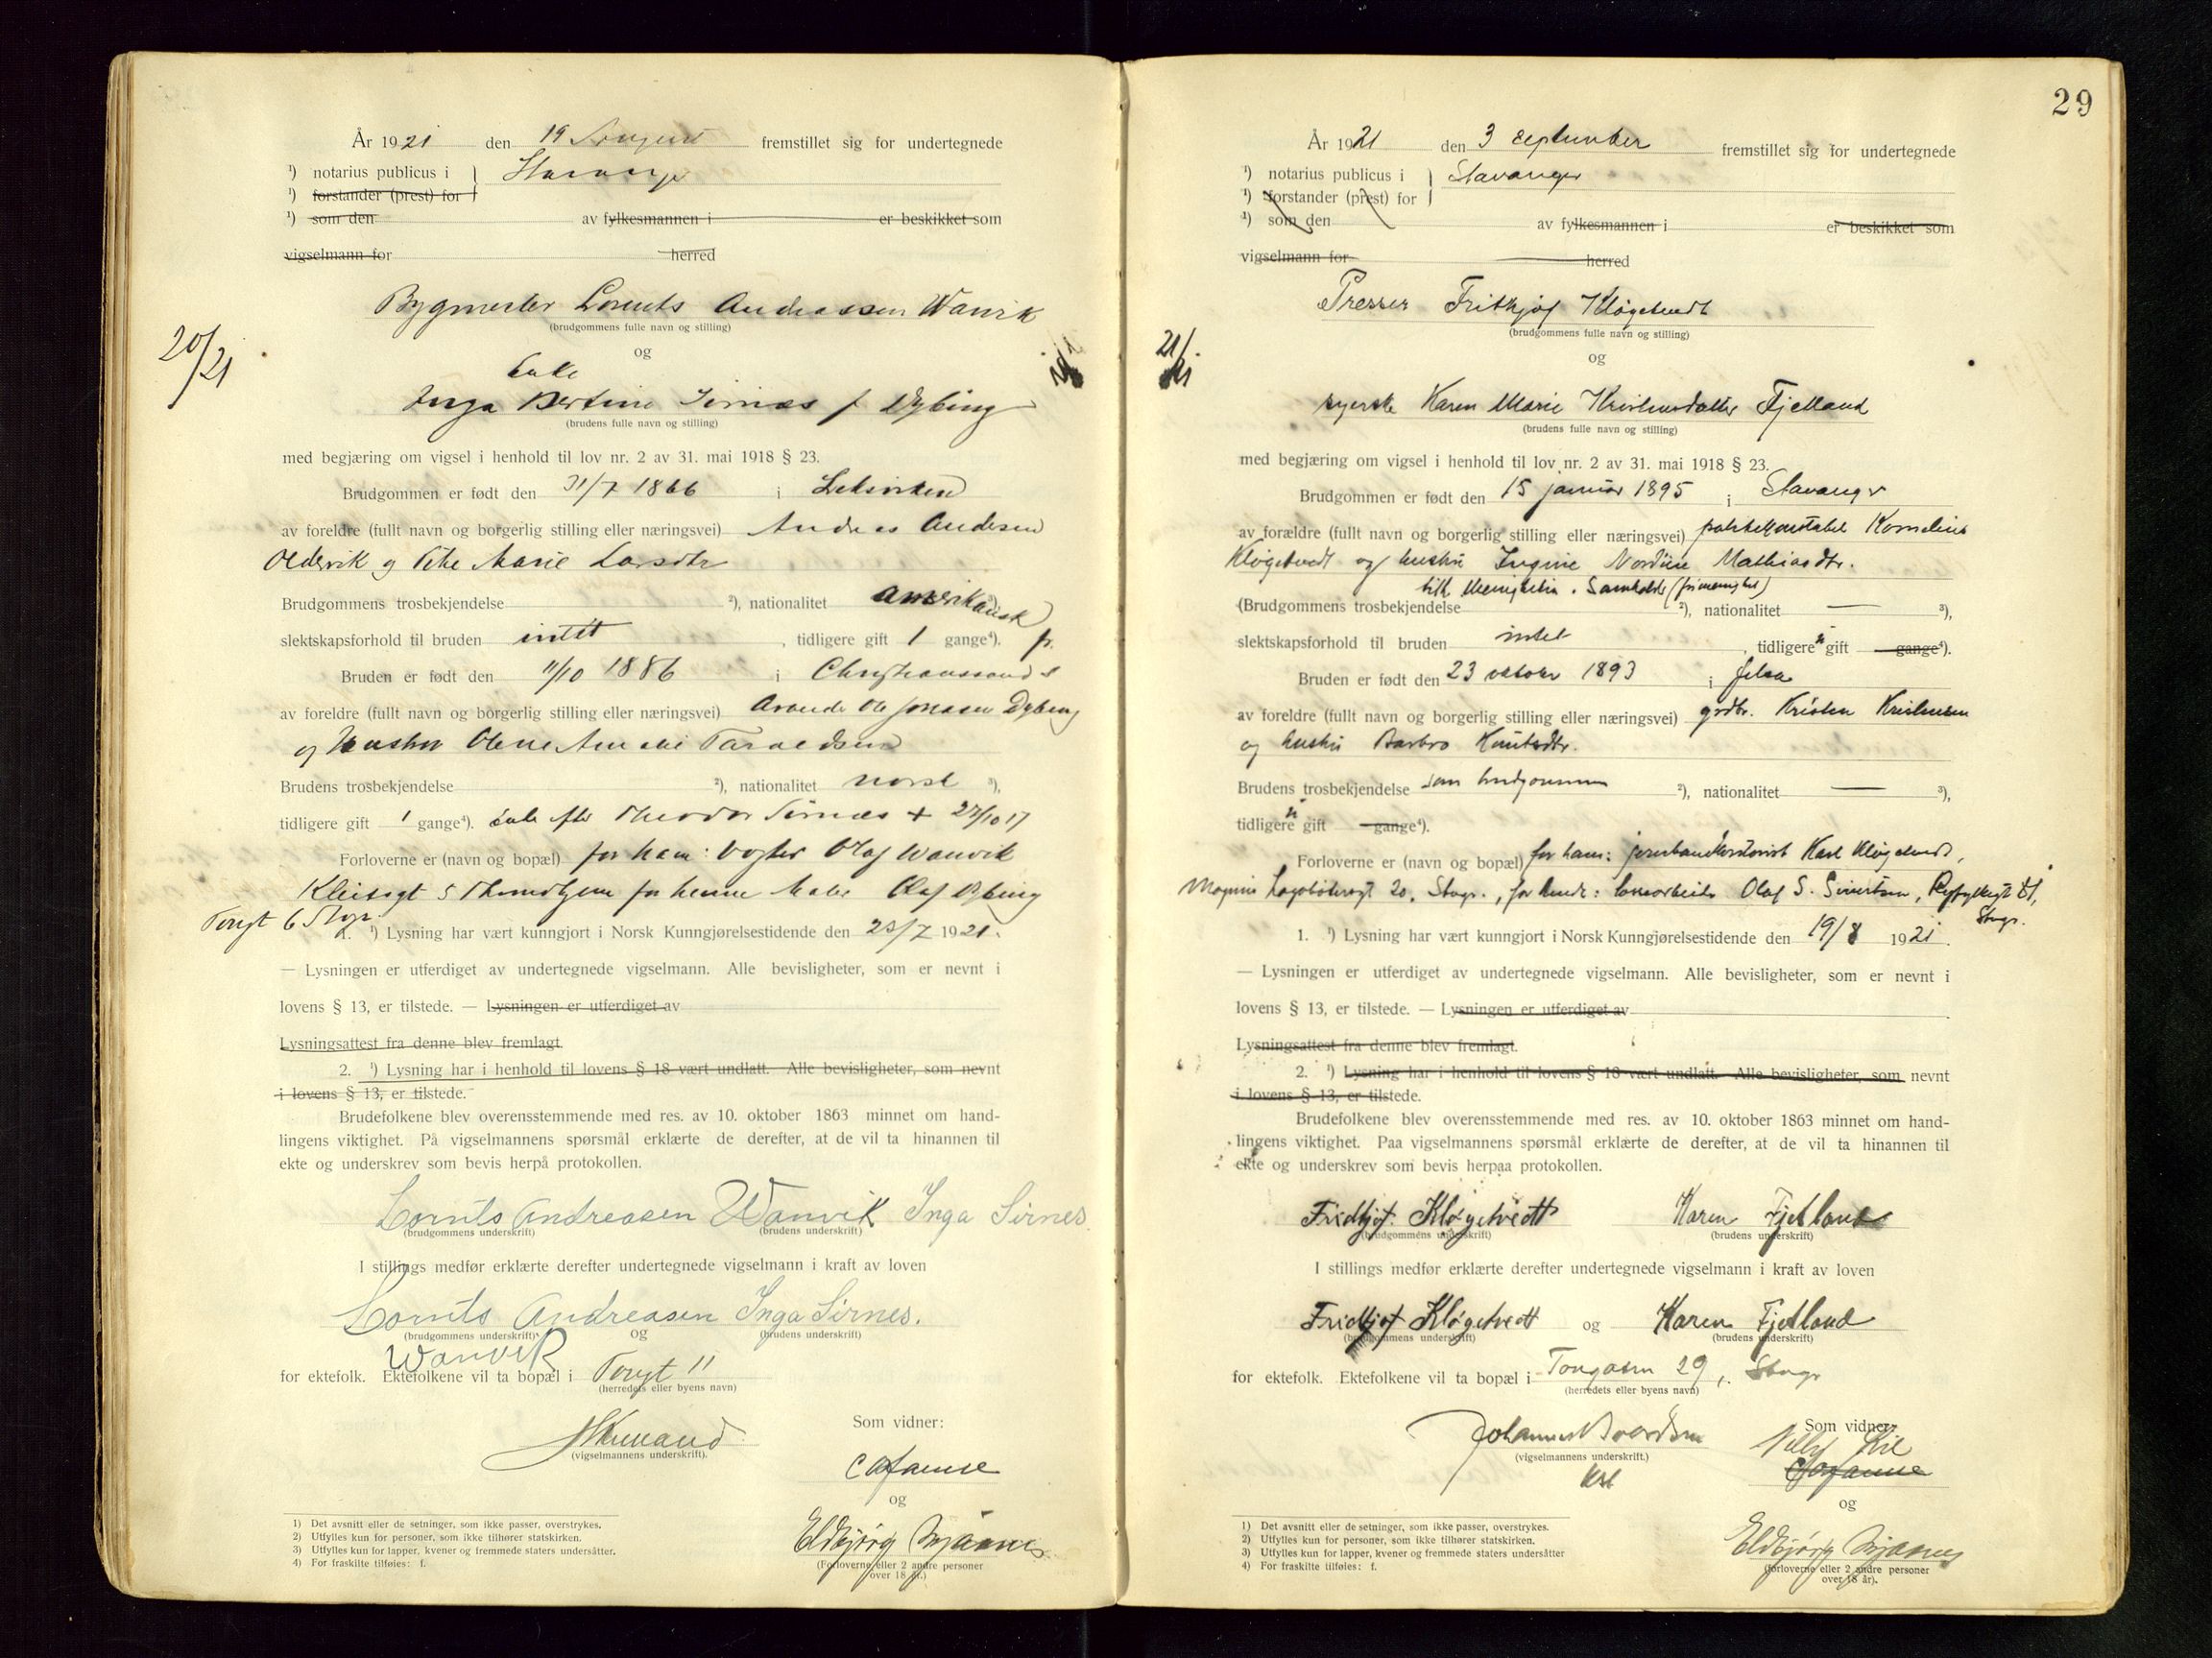 År 1921 den 19 August fremstillet sig for undertegnede
¹) notarius publicus i Stavanger
¹) forstander (prest) for
¹) som den av fylkesmannen i er beskikket som
vigselmann for herred
20/21
Bygmester Lorents Andreassen Wanvik
(brudgommens fulle navn og stilling)
og
Enke
Inga Bertine Sirnæs f Dybing
(brudens fulle navn og stilling)
med begjæring om vigsel i henhold til lov nr. 2 av 31. mai 1918 § 23.
Brudgommen er født den 31/7 1866 i Leksviken
av foreldre (fullt navn og borgerlig stilling eller næringsvei) Andreas Andersen
Oldervik og Marie Larsdtr
Brudgommens trosbekjendelse ²), nationalitet amerikansk ³),
slektskapsforhold til bruden intet , tidligere gift 1 gange⁴). fr.
Bruden er født den 11/10 1886 i Christianssand S
av foreldre (fullt navn og borgerlig stilling eller næringsvei) Ole Jonasen Dybing
og Hustru Olene Amalie
Brudens trosbekjendelse ²), nationalitet norsk ³),
tidligere gift 1 gange⁴). enke efter Theodor Sirnæs + 27/10 17
Forloverne er (navn og bopæl) for ham: Olaf Wanvik
5 Throndhjem for henne Maler Olaf Dybing
6 Stgr.
1. ¹) Lysning har vært kunngjort i Norsk Kunngjørelsestidende den 23/7 1921.
— Lysningen er utferdiget av undertegnede vigselmann. Alle bevisligheter, som er nevnt i
lovens § 13, er tilstede. — Lysningen er utferdiget av
Lysningsattest fra denne blev fremlagt.
2. ¹) Lysning har i henhold til lovens § 18 vært undlatt. Alle bevisligheter, som nevnt
i lovens § 13, er tilstede.
Brudefolkene blev overensstemmende med res. av 10. oktober 1863 minnet om hand-
lingens viktighet. På vigselmannens spørsmål erklærte de derefter, at de vil ta hinannen til
ekte og underskrev som bevis herpå protokollen.
Lornts Andreasen Wanvik Inga Sirnes.
(brudgommens underskrift) (brudens underskrift)
I stillings medfør erklærte derefter undertegnede vigselmann i kraft av loven
Lornts Andreasen Inga Sirnes.
(brudgommens underskrift) og (brudens underskrift)
Wanvik
for ektefolk. Ektefolkene vil ta bopæl i 11
(herredets eller byens navn)
(vigselmannens underskrift).
Som vidner:
og
Eldbjørg
(Forloverne eller 2 andre personer
over 18 år.)
1) Det avsnitt eller de setninger, som ikke passer, overstrykes.
2) Utfylles kun for personer, som ikke tilhører statskirken.
3) Utfylles kun for lapper, kvener og fremmede staters undersåtter.
4) For fraskilte tilføies: f.
29
År 1921 den 3 september fremstillet sig for undertegnede
¹) notarius publicus i Stavanger
¹) forstander (prest) for
¹) som den av fylkesmannen i er beskikket som
vigselmann for herred
21/21
Presser Frithjof Kløgetvedt
(brudgommens fulle navn og stilling)
og
syerske Karen Marie Kristensdatter Fjelland
(brudens fulle navn og stilling)
med begjæring om vigsel i henhold til lov nr. 2 av 31. mai 1918 § 23.
Brudgommen er født den 15 januar 1895 i Stavanger
av forældre (fullt navn og borgerlig stilling eller næringsvei) politikonstabel Kornelius
Kløgetvedt og hustru Ingine Nordine Mathiasdtr.
(Brudgommens trosbekjendelse (frimenighet) ²), nationalitet — ³),
slektskapsforhold til bruden intet , tidligere ei gift gange⁴).
Bruden er født den 23 oktober 1893 i Jelsa
av foreldre (fullt navn og borgerlig stilling eller næringsvei) grdbr. Kristen Kristensen
og hustru Barbro Knutsdtr.
Brudens trosbekjendelse som brudgommen ²), nationalitet — ³),
tidligere ei gift gange⁴).
Forloverne er (navn og bopæl) for ham: Karl Kløgetvedt,
Magnus Lagabøtersgt 20, Stvgr., for hende: Olaf S. Sivertsen, Ryfylkegt 21,
Stvgr.
1. ¹) Lysning har vært kunngjort i Norsk Kunngjørelsestidende den 19/8 1921.
— Lysningen er utferdiget av undertegnede vigselmann. Alle bevisligheter, som er nevnt i
lovens § 13, er tilstede. — Lysningen er utferdiget av
Lysningsattest fra denne blev fremlagt.
2. ¹) Lysning har i henhold til lovens § 18 vært undlatt. Alle bevisligheter, som nevnt
i lovens § 13, er tilstede.
Brudefolkene blev overensstemmende med res. av 10. oktober 1863 minnet om hand-
lingens viktighet. Paa vigselmannens spørsmål erklærte de derefter, at de vil ta hinannen til
ekte og underskrev som bevis herpaa protokollen.
Fridtjof Kløgetvedt Karen Fjelland
(brudgommens underskrift) (brudens underskrift)
I stillings medfør erklærte derefter undertegnede vigselmann i kraft av loven
Fridtjof Kløgetvedt og Karen Fjelland
(brudgommens underskrift) (brudens underskrift)
for ektefolk. Ektefolkene vil ta bopæl i 29, Stvgr
(herredets eller byens navn)
Johannes
(vigselmannens underskrift.)
Som vidner:
og
Eldbjørg
(forloverne eller 2 andre personer
over 18 år).
1) Det avsnitt eller de setninger, som ikke passer, overstrykes.
2) Utfylles kun for personer, som ikke tilhører statskirken.
3) Utfylles kun for lapper, kvener og fremmede staters undersåtter
4) For fraskilte tilføies: f.